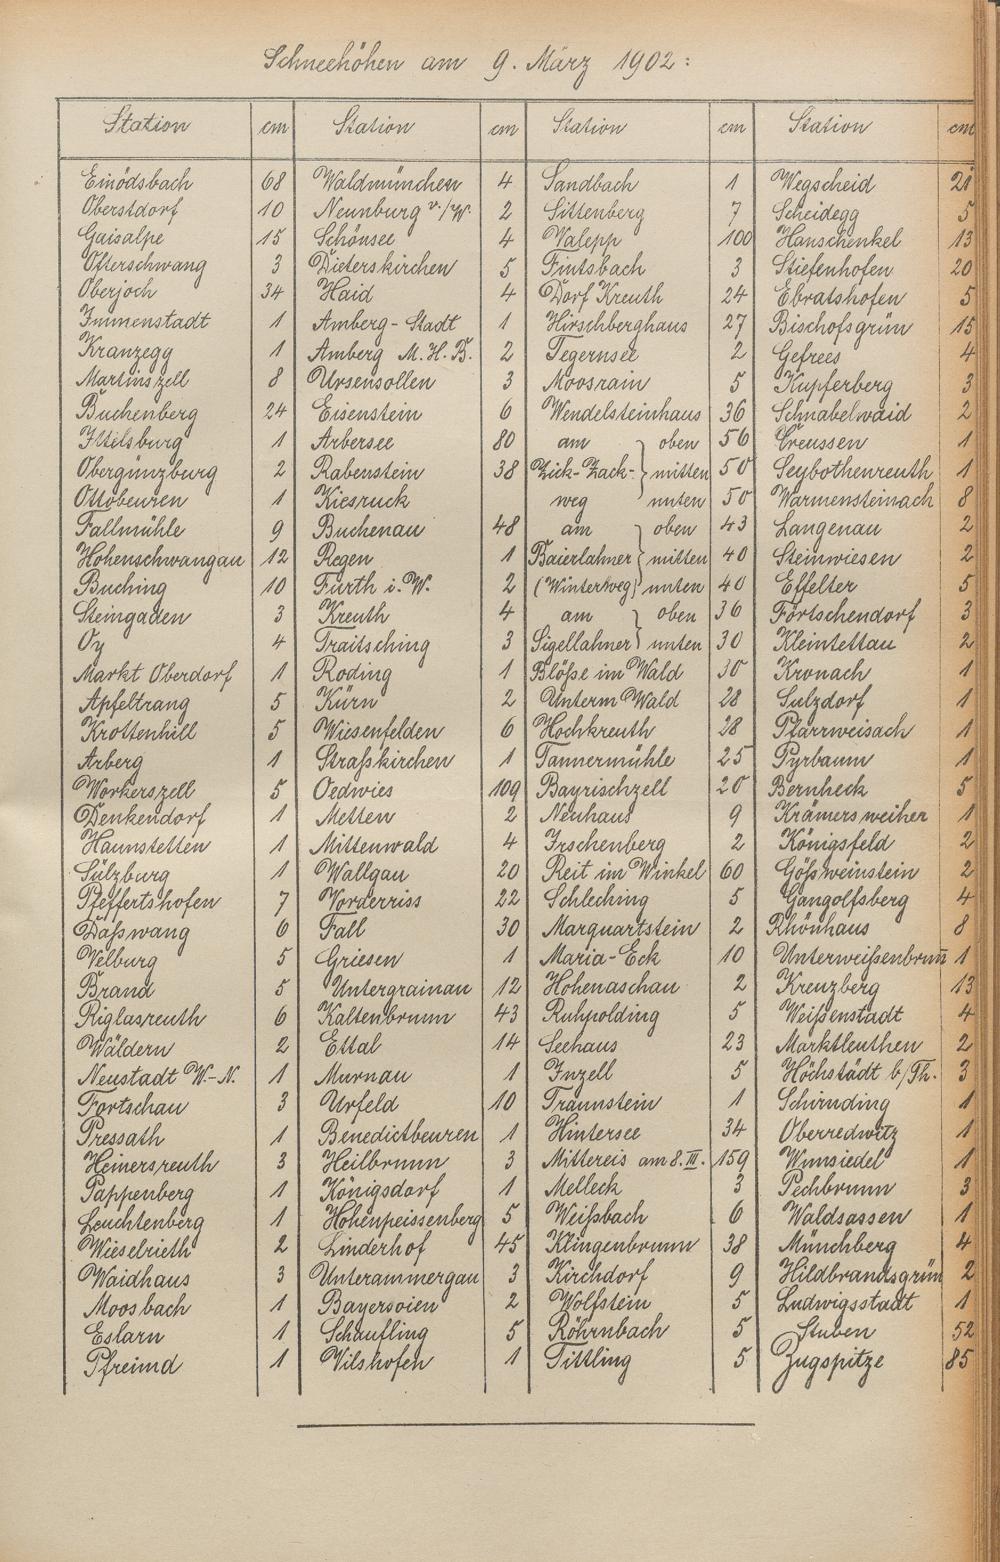 Schneehöhen am 9. März 1902:
Station cm Station cm Station cm Station cm
Einödsbach 68 Waldmünchen 4 Sandbach 1 Wegscheid 21
Oberstdorf 10 Neunburg v./W. 2 Sittenberg 7 Scheidegg 5
Gaisalpe 15 Schönsee 4 Valepp 100 Hauschenkel 13
Ofterschwang 3 Dieterskirchen 5 Fintsbach 3 Stiefenhofen 20
Oberjoch 34 Haid 4 Dorf Kreuth 24 Ebratshofen 5
Immenstadt 1 Amberg-Stadt 1 Hirschberghaus 27 Bischofsgrün 15
Kranzegg 1 Amberg M.H.B. 2 Tegernsee 2 Gefrees 4
Martinszell 8 Ursensollen 3 Moosrain 5 Kupferberg 3
Buchenberg 24 Eisenstein 6 Wendelsteinhaus 36 Schnabelwaid 2
Ittelsburg 1 Arbersee 80 am oben 56 Creussen 1
Obergünzburg 2 Rabenstein 38 Zick-Zack- mitten 50 Seybothenreuth 1
Ottobeuren 1 Kiesruck weg unten 50 Warmensteinach 8
Fallmühle 9 Buchenau 48 am oben 43 Langenau 2
Hohenschwangau 12 Regen 1 Baierlahner mitten 40 Steinwiesen 2
Buching 10 Furth i. W. 2 (Winterweg) unten 40 Effelter 5
Steingaden 3 Kreuth 4 am oben 36 Förtschendorf 3
Oy 4 Traitsching 3 Sigellahner unten 30 Kleintettau 2
Markt Oberdorf 1 Roding 1 Blöße im Wald 30 Kronach 1
Apfeltrang 5 Kürn 2 Unterm Wald 28 Sulzdorf 1
Krottenhill 5 Wiesenfelden 6 Hochkreuth 28 Pfarrweisach 1
Arberg 1 Straßkirchen 1 Tannermühle 25 Pyrbaum 1
Workerszell 5 Oedwies 109 Bayrischzell 20 Bernheck 5
Denkendorf 1 Metten 2 Neuhaus 9 Krämersweiher 1
Haunstetten 1 Mittenwald 4 Irschenberg 2 Königsfeld 2
Sulzburg 1 Wallgau 20 Reit im Winkel 60 Gößweinstein 2
Pfeffertshofen 7 Vorderriss 22 Schleching 5 Gangolfsberg 4
Daßwang 6 Fall 30 Marquartstein 2 Rhönhaus 8
Velburg 5 Griesen 1 Maria-Eck 10 Unterweißenbrun̄ 1
Brand 5 Untergrainau 12 Hohenaschau 2 Kreuzberg 13
Riglasreuth 6 Kaltenbrunn 43 Ruhpolding 5 Weißenstadt 4
Wäldern 2 Ettal 14 Seehaus 23 Marktleuthen 2
Neustadt W.-N. 1 Murnau 1 Inzell 5 Höchstädt b/Th. 3
Fortschau 3 Urfeld 10 Traunstein 1 Schirnding 1
Pressath 1 Benedictbeuren 1 Hintersee 34 Oberredwitz 1
Heinersreuth 3 Heilbrunn 3 Mittereis am 8. III. 159 Wunsiedel 1
Pappenberg 1 Königsdorf 1 Melleck 3 Pechbrunn 3
Leuchtenberg 1 Hohenpeissenberg 5 Weißbach 6 Waldsassen 1
Wieselrieth 2 Linderhof 45 Klingenbrunn 38 Münchberg 4
Waidhaus 3 Unterammergau 3 Kirchdorf 9 Hildbrandsgrün 2
Moosbach 1 Bayersoien 2 Wolfstein 5 Ludwigsstadt 1
Eslarn 1 Schaufling 5 Röhrnbach 5 Stuben 52
Pfreimd 1 Vilshofen 1 Tittling 5 Zugspitze 85